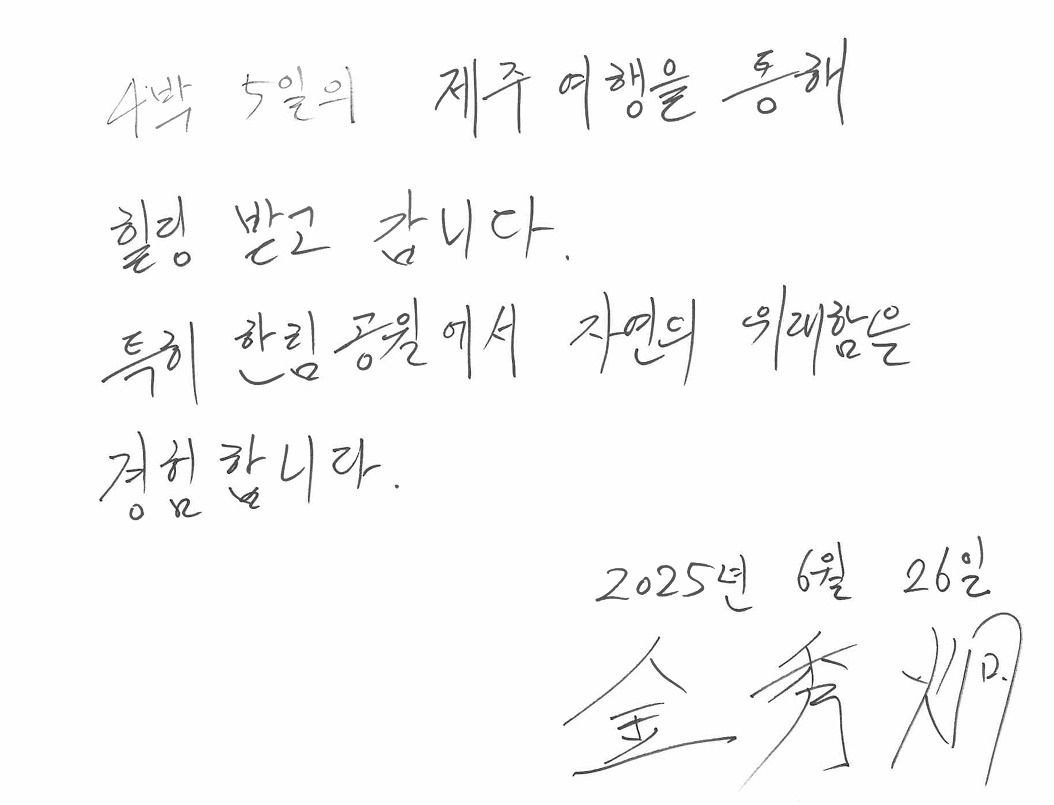 4박 5일의 제주 여행을 통해
힐링 받고 갑니다.
특히 한림공원에서 자연의 위대함을
경험합니다.
2025년 6월 26일
金秀炯